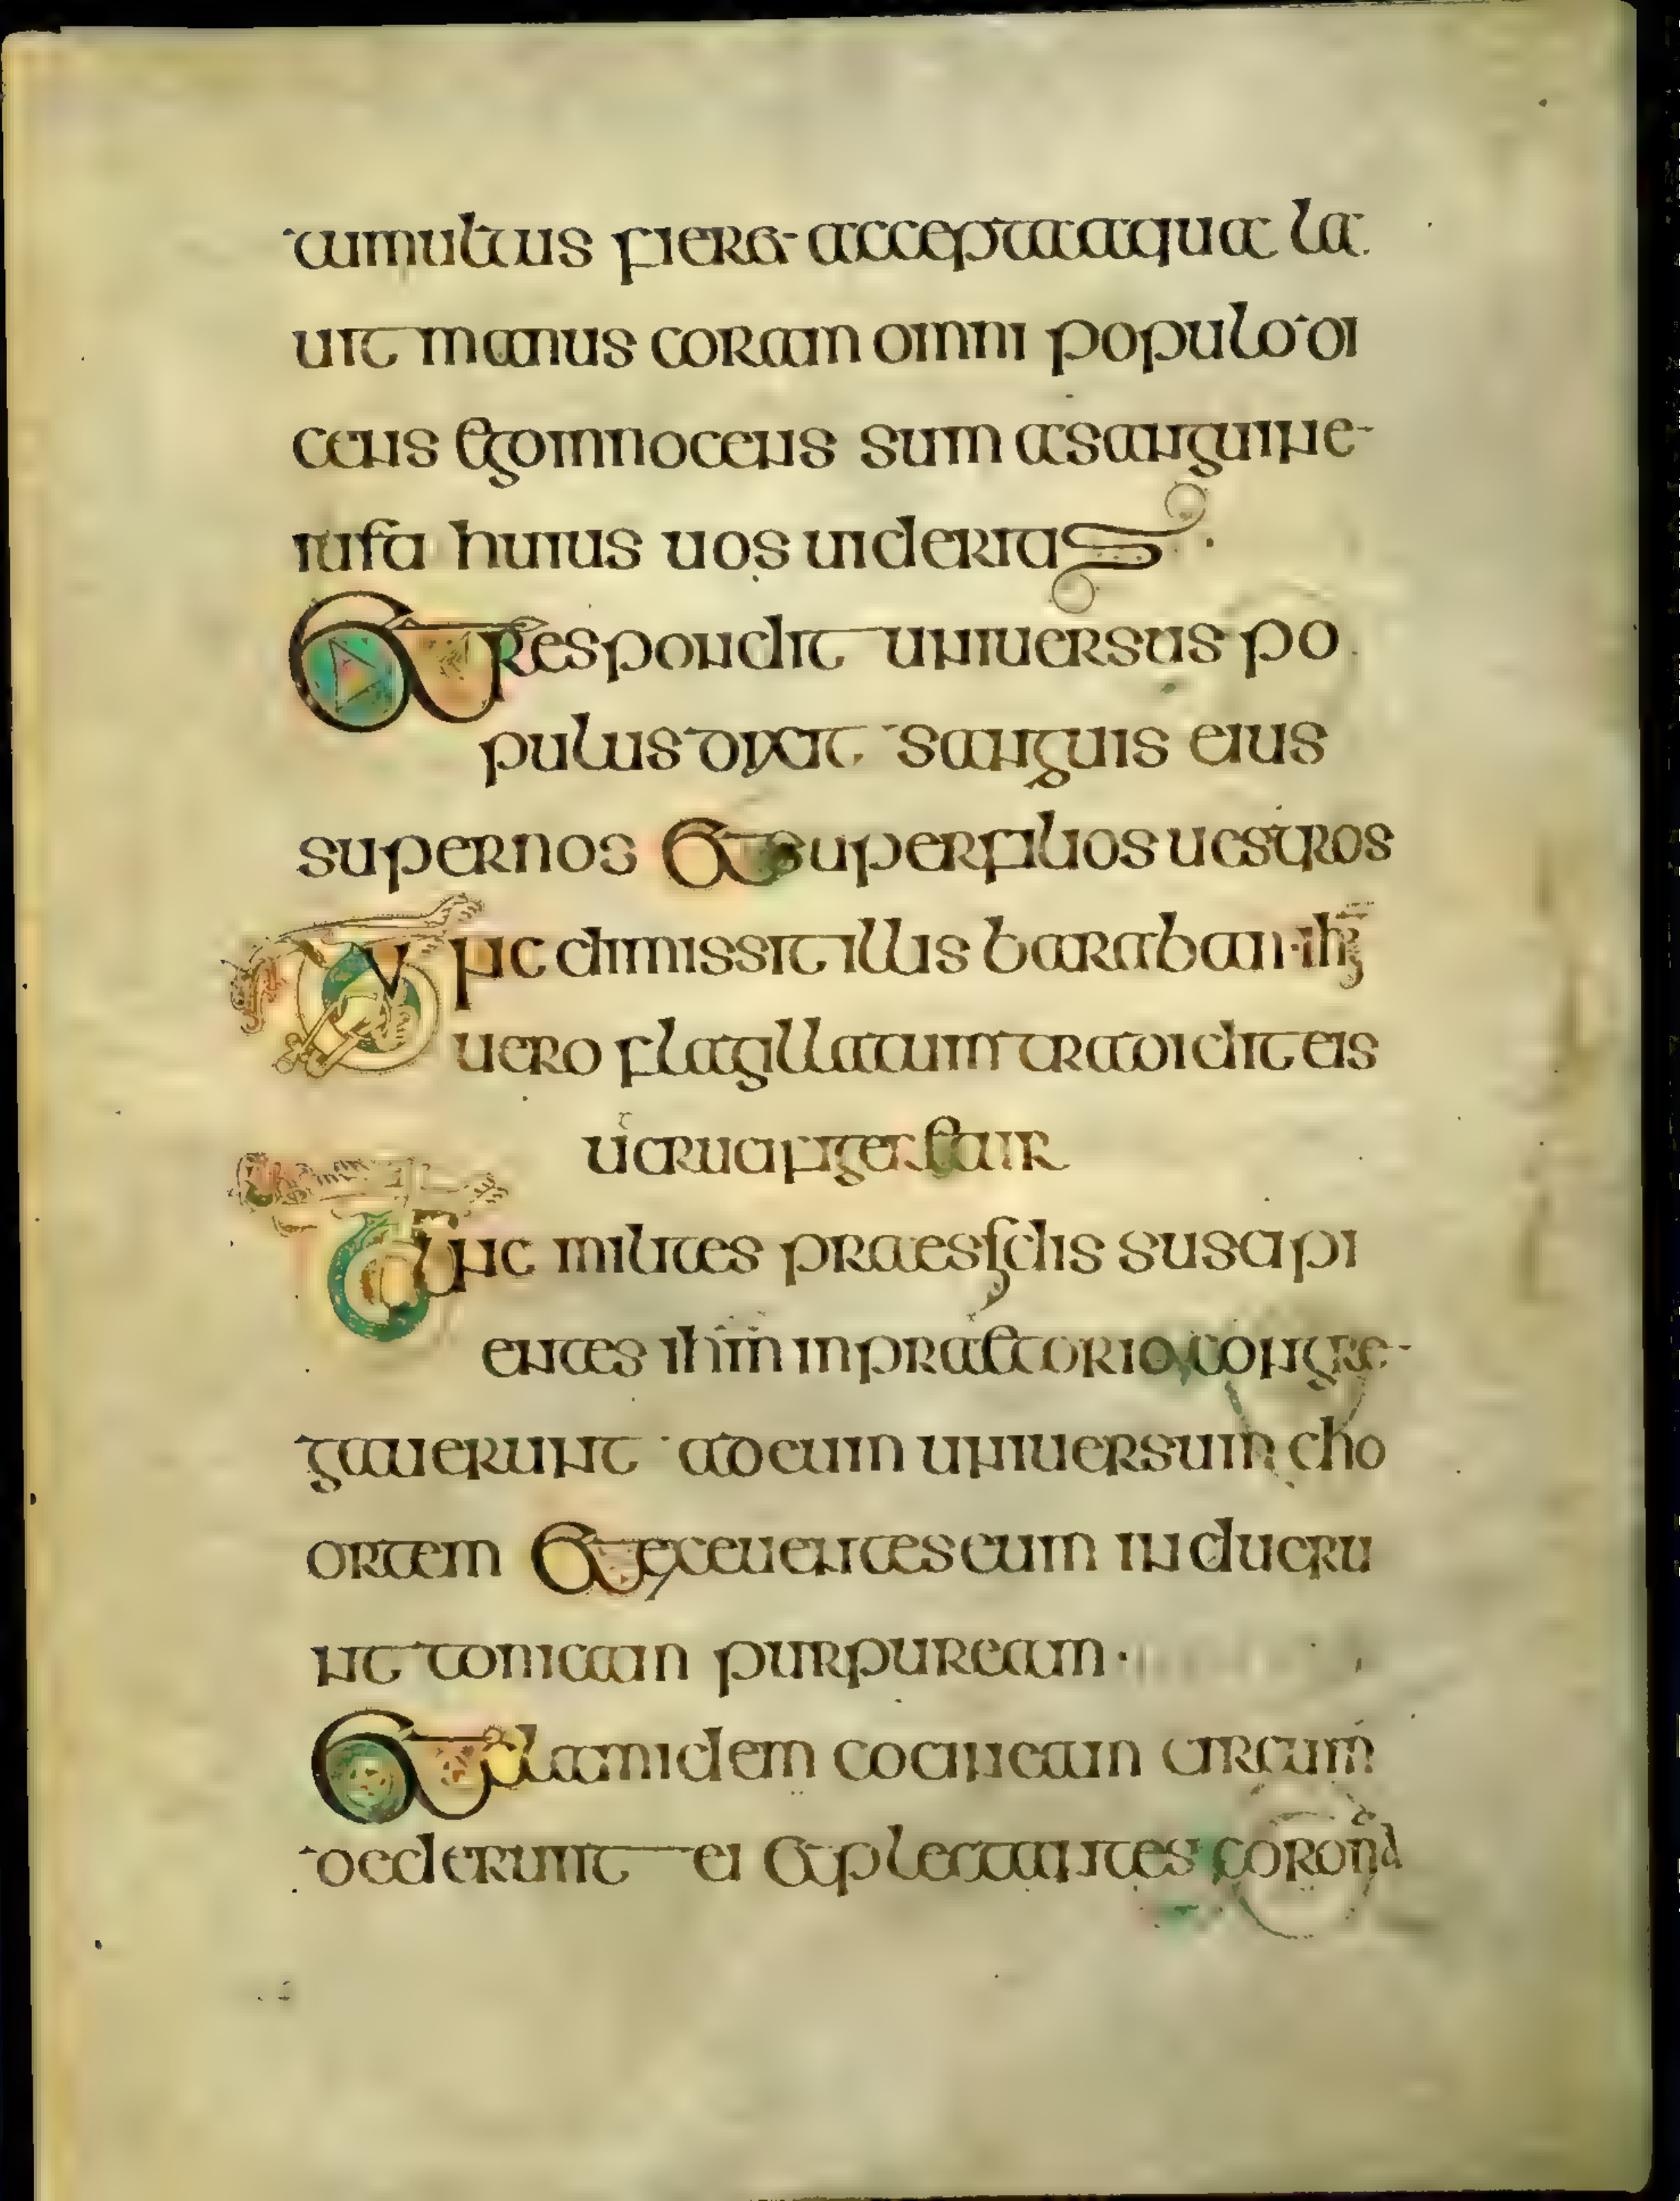 tumultus fieret accepta aqua la
uit manus coram omni populo di
cens ego innocens sum a sanguine
iusti huius uos uideritis
Et respondit uniuersus po
pulus dixit sanguis eius
super nos et super filios uestros
Tunc dimissit illis baraban ihs
uero flagllatum tradidit eis
ut crucifigeretur
Tunc milites praessidis suscipi
entes ihm in praetorio congre
gauerunt ad eum uniuersum cho
ortem et exeuentes eum indueru
nt tonicam purpuream
Et clamidem coccineam circum
dederunt ei et plectantes coronā